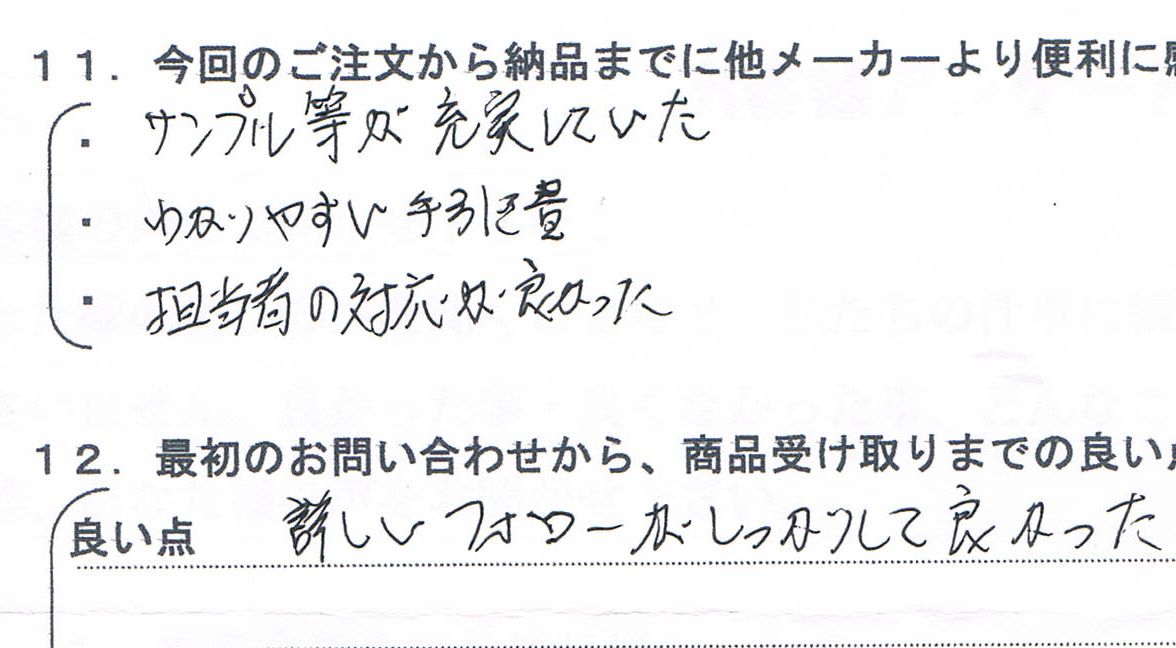 11. 今回のご注文から納品までに他メーカーより便利に感
・ サンプル等が充実していた
・ わかりやすい手引き書
・ 担当者の対応が良かった
12. 最初のお問い合わせから、商品受け取りまでの良い点
良い点 詳しいフォローがしっかりして良かった